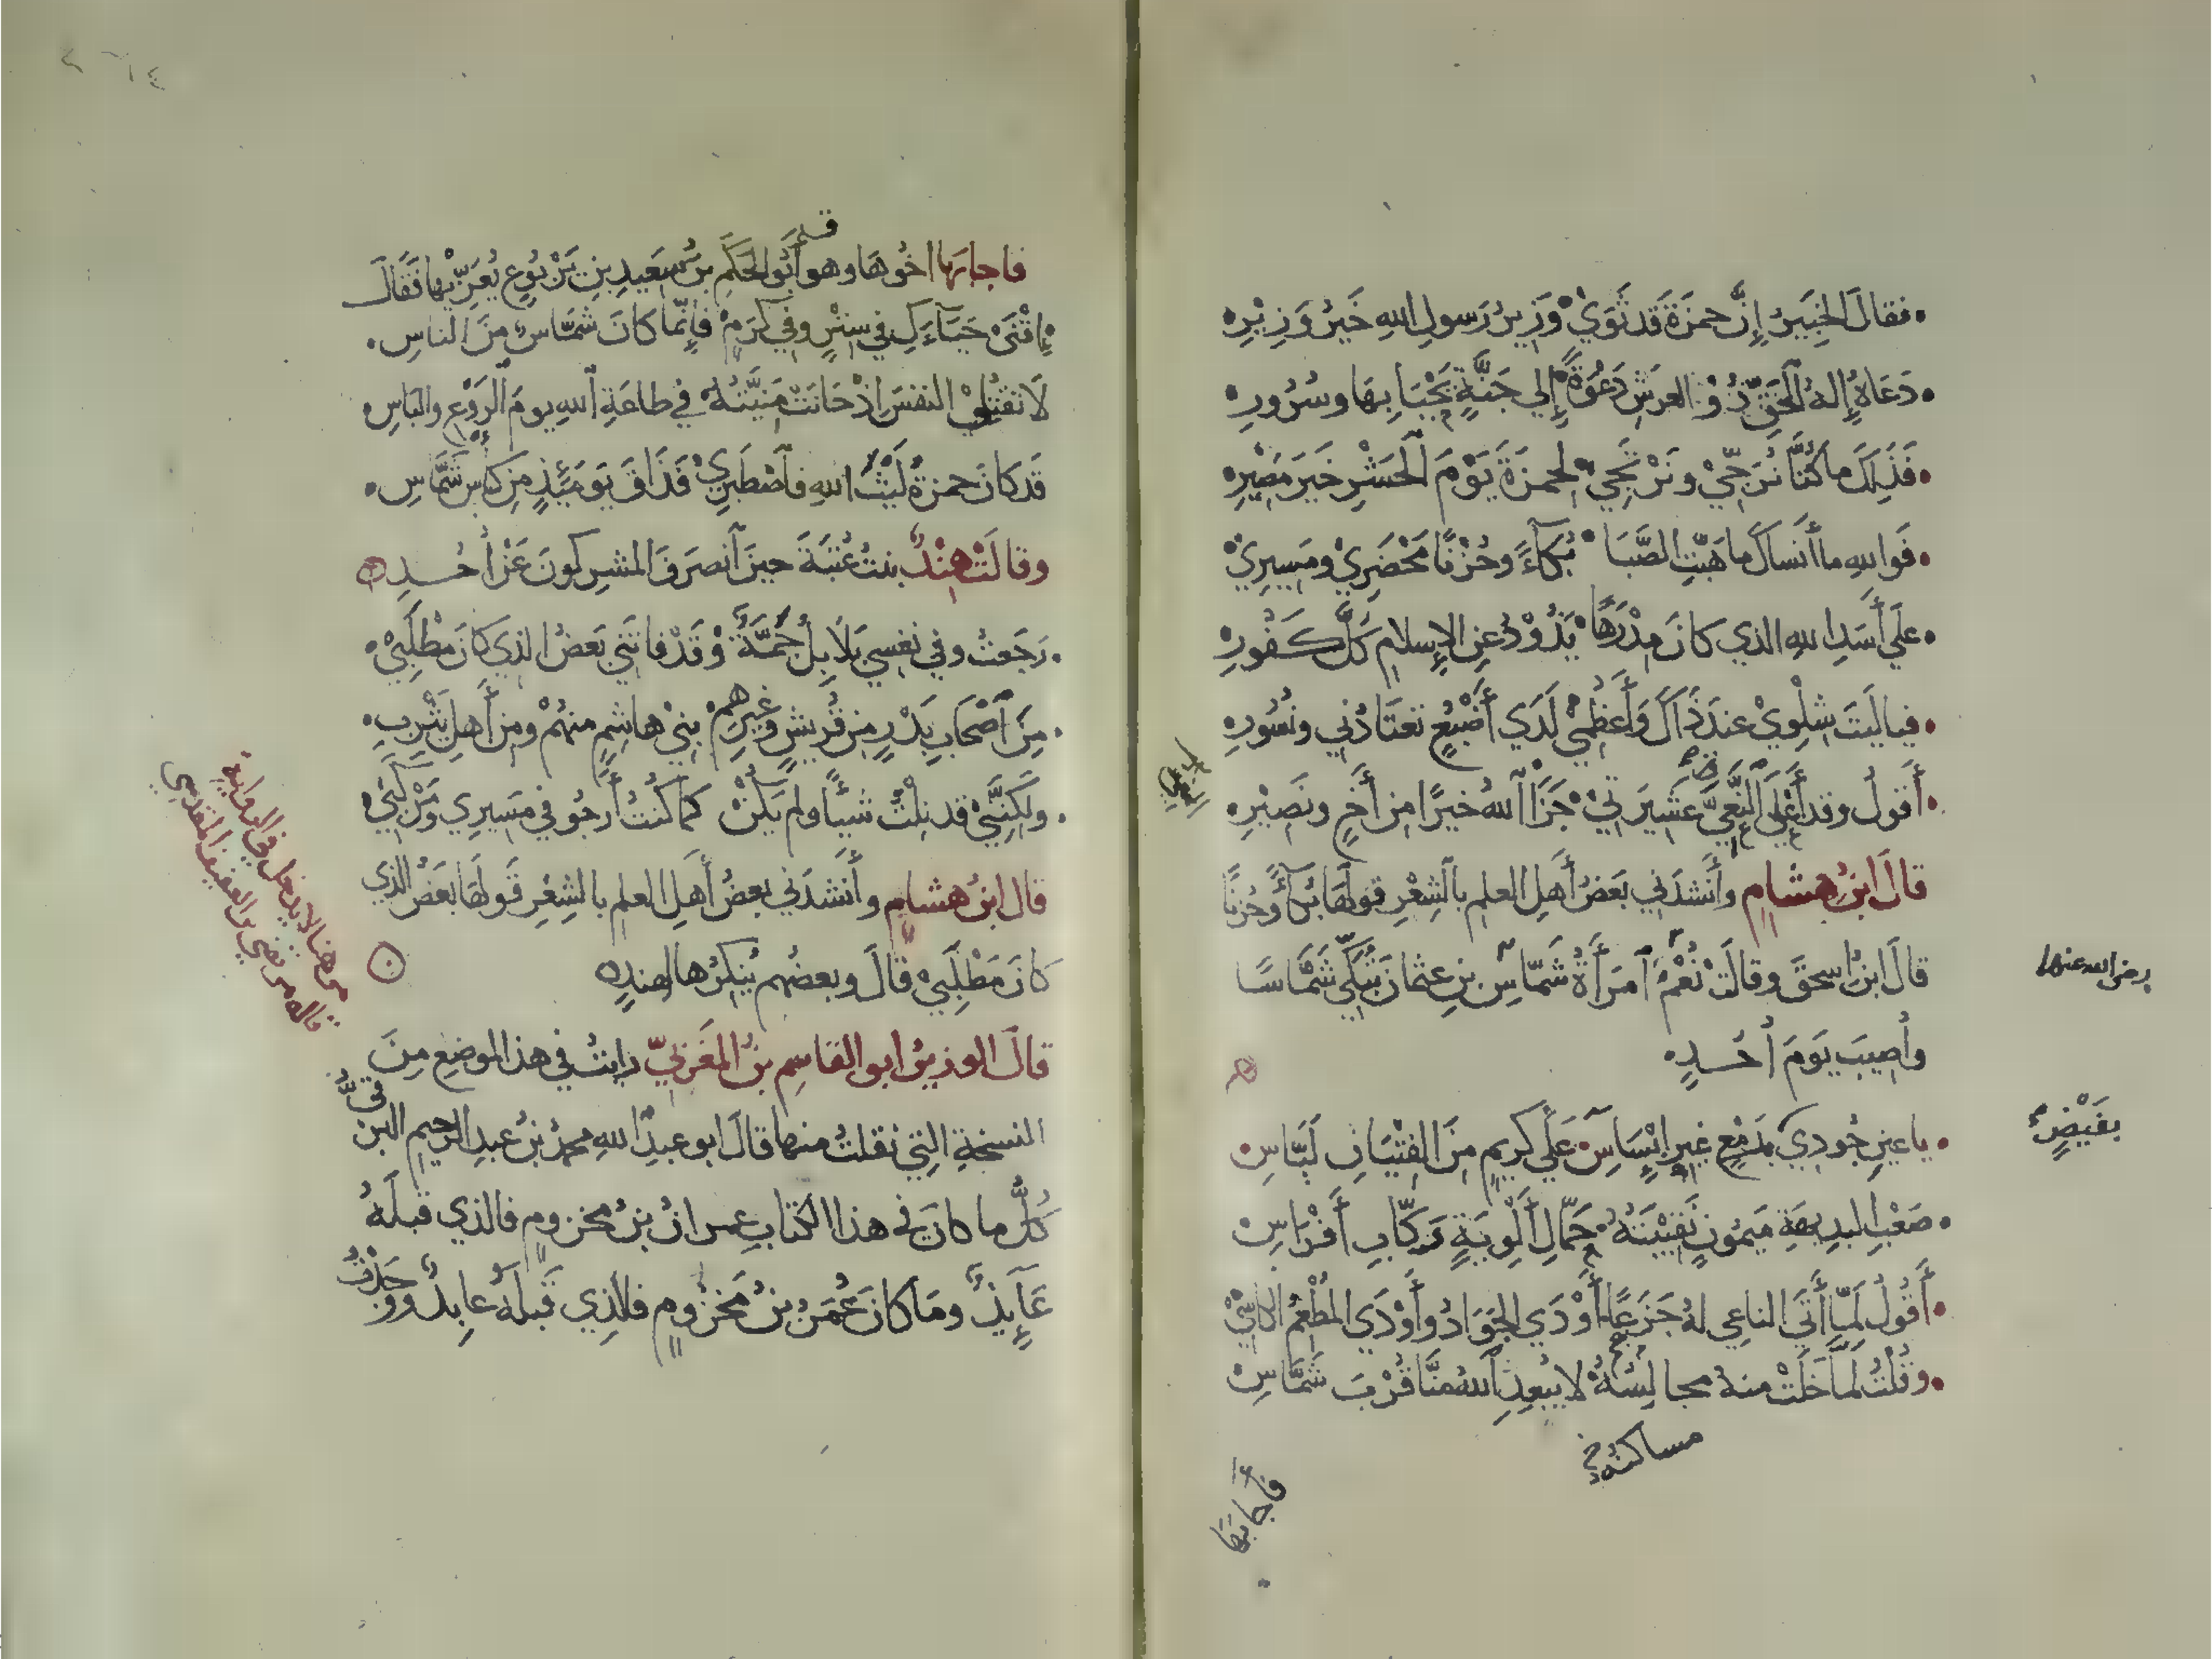 فقال الخبير إنَّ حمزة قد ثوي وزير رسول الله خير وزير
دعاه إله الحقّ ذو العرش دعوةً إلي جنّةٍ يحيا بها وسرور
فذلك ما كنّا نرجّي ونرتجي لحمزة يوم الحشر خير مصير
فوالله ما أنساك ما هبّت الصَّبا بكاءً وحزنًا محضري ومسيري
علي أسد الله الذي كان مدرهًا يذود عن الإسلام كلّ كفور
فيا ليت شلوي عند ذاك وأعظمي لدي أضبع تعتادني ونسور
أقول وقد أعلي النعيّ عشيرتي جزا الله خيرًا من أخٍ ونصير
قال ابن هشام وأنشدني بعض أهل العلم بالشعر قولها بكاءً وحزنًا
قال ابن إسحق وقالت نُعْم امرأة شمّاس بن عثمان تبكّي شمّاسًا
رضي الله عنها
وأصيب يوم أحد
يا عين جودي بدمع غير إبساس علي كريم من الفتيان لبّاس
بفيضٍ
صعب البديهة ميمون نقيبته حمّال ألوية ركّاب أفراس
أقول لمّا أتي الناعي له جزعًا أودي الجواد وأودي المطعم الكاسي
وقلت لمّا خلت منه مجالسه لا يبعد الله منّا قرب شمّاس
مساكنه
فأجابها
فاجابها اخوها وهو أبو الحكم بن سعيد بن يربوع يعزّيها فقال
اقني حياءك في ستر وفي كرم فإنّما كان شمّاس من الناس
لا تقتلي النفس اذ حانت منيّته في طاعة الله يوم الروع والباس
قد كان حمزة ليث الله فاصطبري فذاق يومئذٍ من كاس شمّاس
وقالت هند بنت عتبة حين انصرف المشركون عن أحد
رجعت وفي نفسي بلابل جمّة وقد فاتني بعض الذي كان مطلبي
من اصحاب بدر من قريش وغيرهم بني هاشم منهم ومن أهل يثرب
ولكنّني قد نلت شيئًا ولم يكن كما كنت أرجو في مسيري ومركبي
قال ابن هشام وأنشدني بعض أهل العلم بالشعر قولها بعض الذي
كان مطلبي قال وبعضهم ينكرها لهند
قال الوزير ابو القاسم بن المغربيّ رايت في هذا الموضع من
النسخة التي نقلت منها قال ابو عبد الله محمد بن عبد الرحيم البرقي
كلّ ما كان في هذا الكتاب عمران بن مخزوم فالذي قبله
عايذ وما كان عمر بن مخزوم فالذي قبله عابد